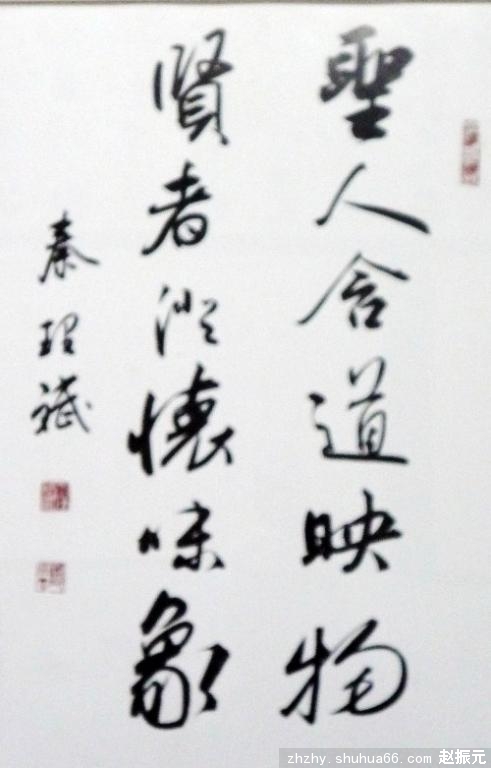 聖人含道映物
賢者澄懷味象
秦 斌
zhzhy. shuhua66. com 赵振元